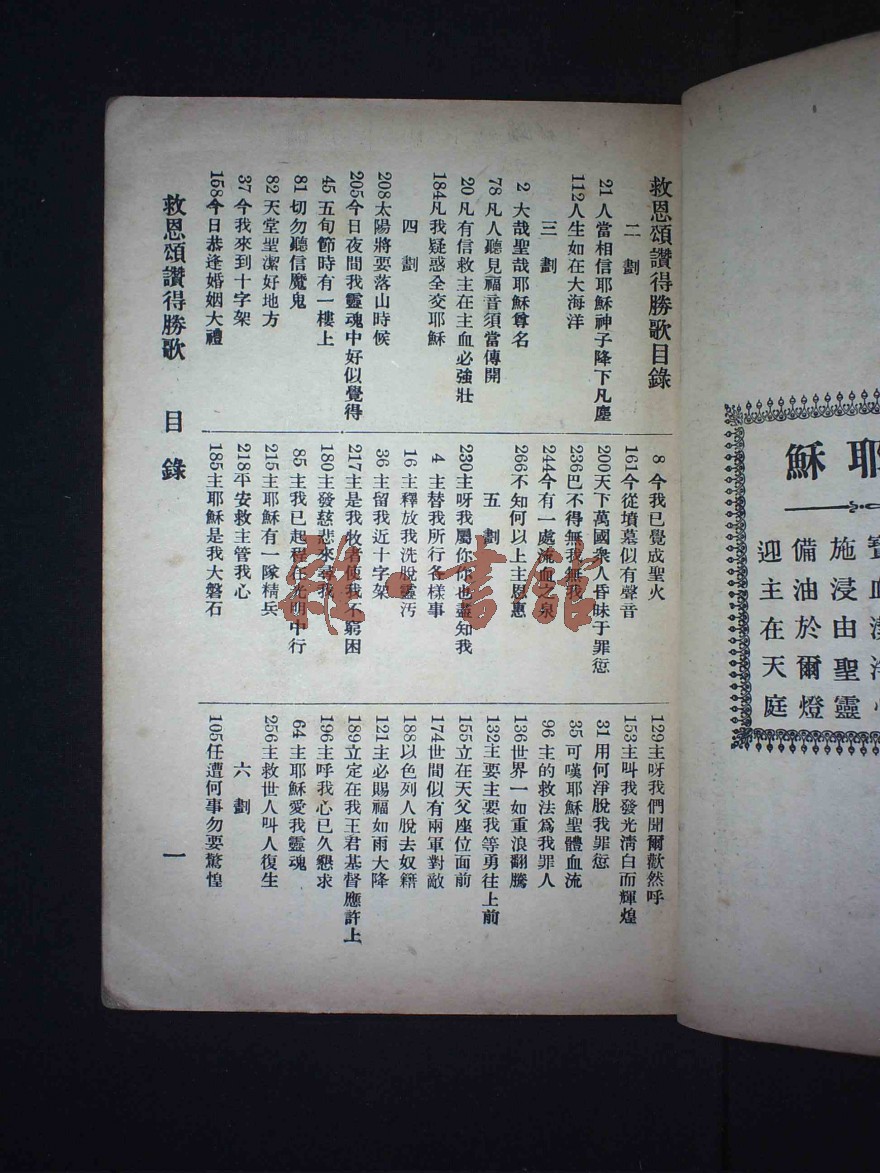 救恩頌讚得勝歌目錄
二劃
21 人當相信耶穌神子降下凡塵
112 人生如在大海洋
三劃
2 大哉聖哉耶穌尊名
78 凡人聽見福音須當傳開
20 凡有信救主在主血必強壯
184 凡我疑惑全交耶穌
四劃
208 太陽將要落山時候
205 今日夜間我靈魂中好似覺得
45 五旬節時有一樓上
81 切勿聽信魔鬼
82 天堂聖潔好地方
37 今我來到十字架
168 今日恭逢婚姻大禮
8 今我已覺成聖火
161 今從墳墓似有聲音
200 天下萬國衆人昏昧于罪愆
236 巴不得無我無我
244 今有一處流血之泉
266 不知何以上主恩惠
五劃
230 主呀我屬你你也盡知我
4 主替我所行各樣事
16 主釋放我洗脫靈汚
36 主留我近十字架
217 主是我牧者使我不窮困
180 主發慈悲來尋我
85 主我已起程在光明中行
215 主耶穌有一隊精兵
218 平安救主管我心
185 主耶穌是我大磐石
129 主呀我們聞爾歡然呼
153 主叫我發光淸白而輝煌
31 用何淨脫我罪愆
35 可嘆耶穌聖體血流
96 主的救法爲我罪人
136 世界一如重浪翻騰
132 主要主要我等勇往上前
155 立在天父座位面前
174 世間似有兩軍對敵
188 以色列人脫去奴籍
121 主必賜福如雨大降
189 立定在我王君基督應許上
196 主呼我心已久懇求
64 主耶穌愛我靈魂
256 主救世人叫人復生
六劃
105 任遭何事勿要驚惶
救恩頌讚得勝歌 目錄 一
耶穌
施浸由聖靈
備油於爾燈
迎主在天庭
雜·書館